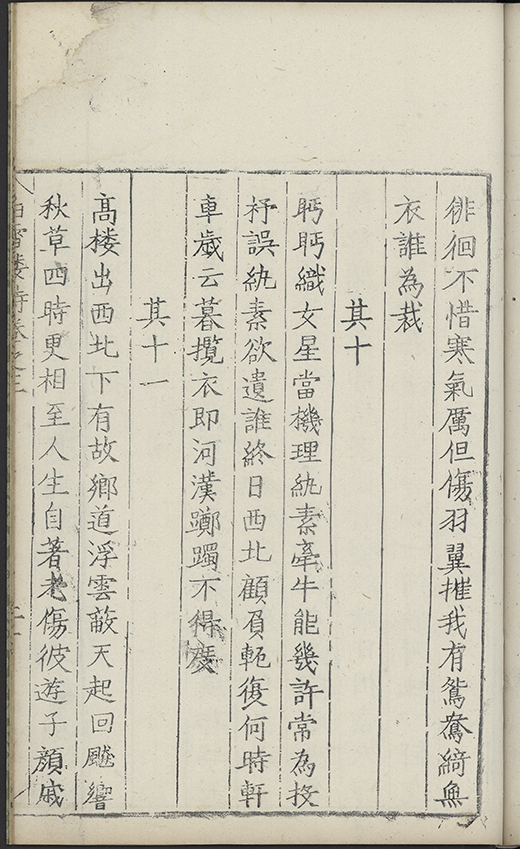 徘徊不惜寒氣厲但傷羽翼摧我有鴛鴦綺無
衣誰為裁
其十
眄眄織女星當機理紈素牽牛能幾許常為投
杼誤紈素欲遺誰終日西北顧負軛復何時軒
車歲云暮攬衣即河漢躑躅不得度
其十一
高楼出西北下有故鄉道浮雲蔽天起回飈響
秋草四時更相至人生自著老傷彼遊子顏戚
白雪楼詩卷之三